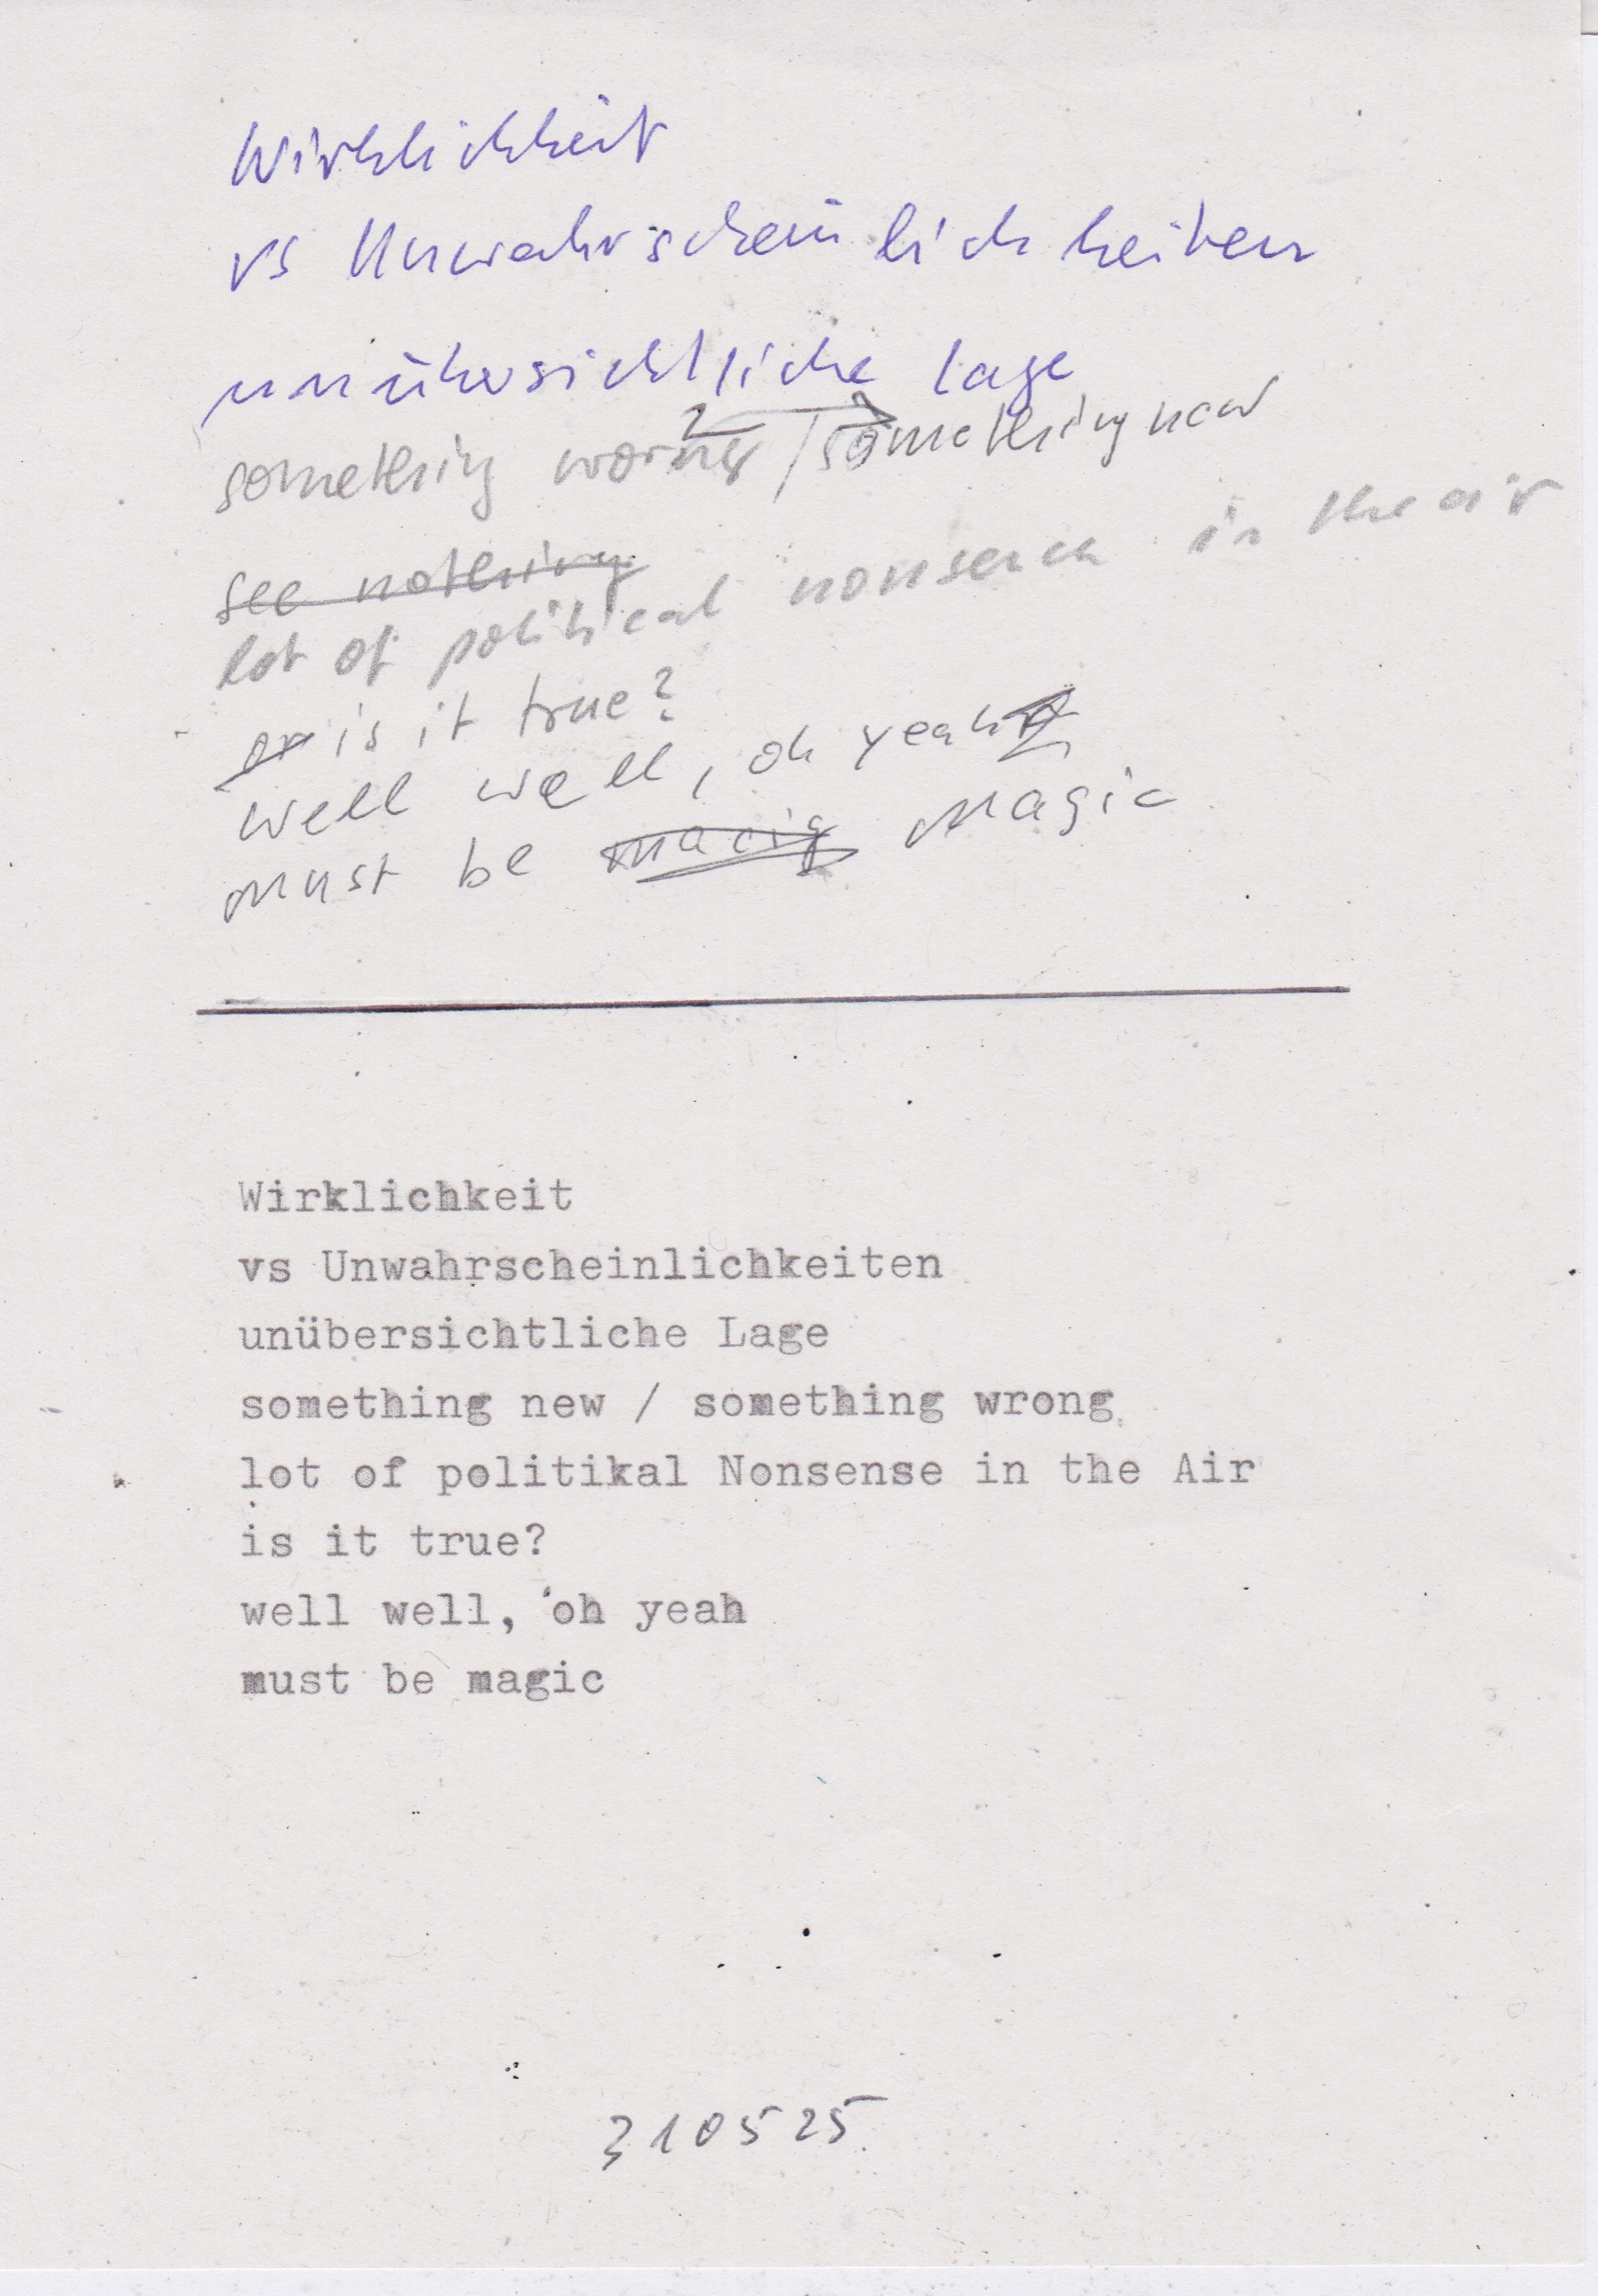 Wirklichkeit
vs Unwahrscheinlichkeiten
unübersichtliche Lage
something / something new
see nothing
lot of political in the air
or is it true?
well well, oh yeah
must be macig magic
Wirklichkeit
vs Unwahrscheinlichkeiten
unübersichtliche Lage
something new / something wrong
lot of politikal Nonsense in the Air
is it true?
well well, oh yeah
must be magic
310525